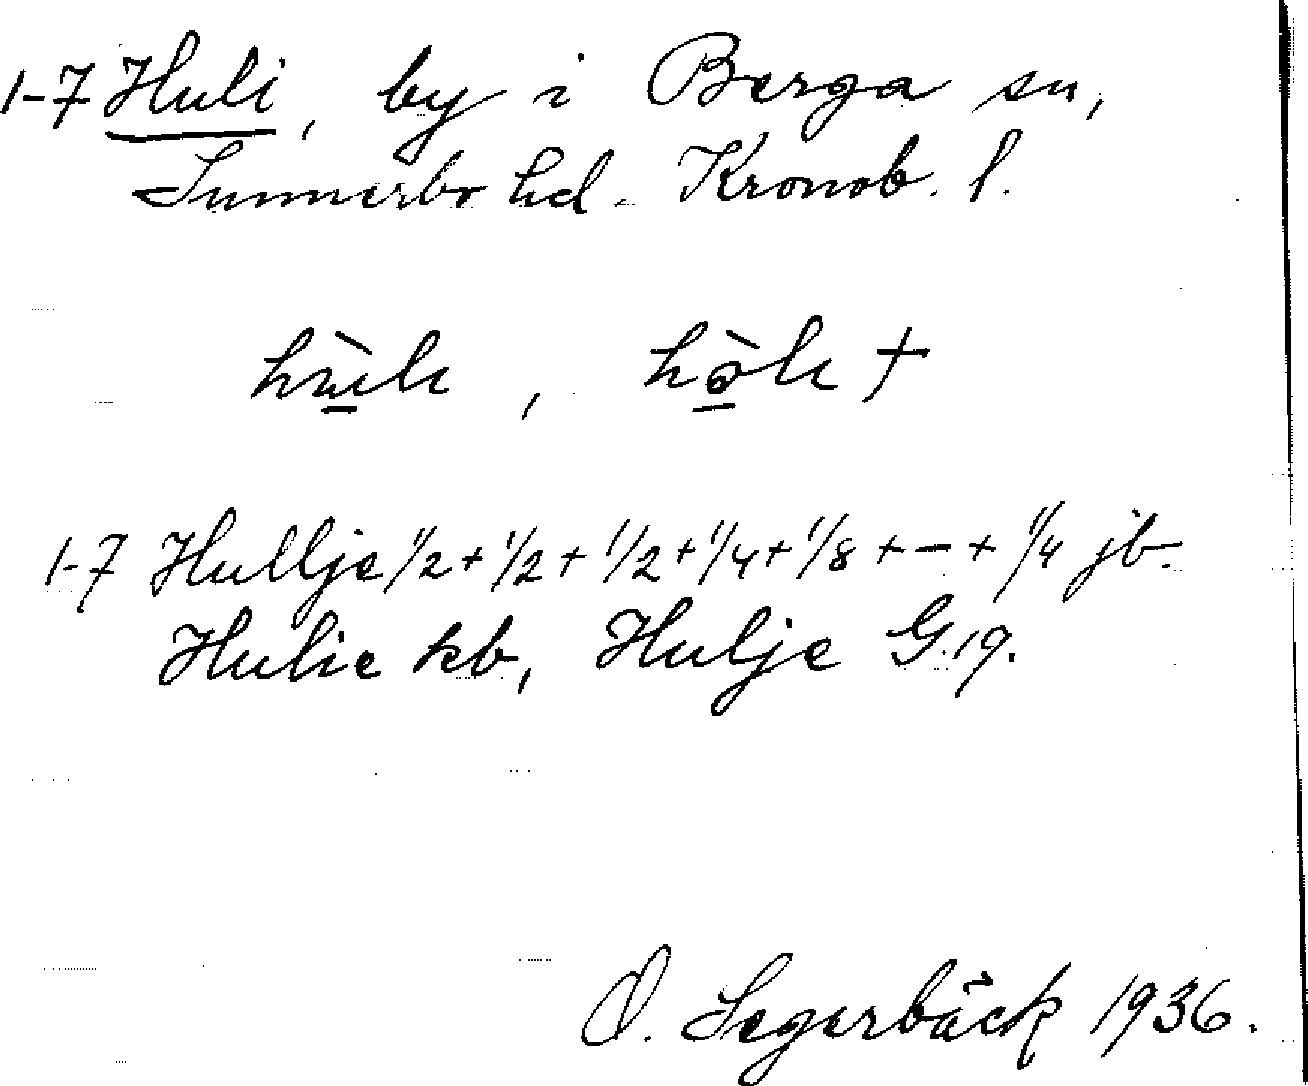 1-7 Huli, by i Berga sn,
Sunnerbo hd. Kronob. l.
1-7 Hullje 1/2 + 1/2 + 1/2 + 1/4 + 1/8 + – + 1/4 jb.
Hulie kb, Hulje G.19.
O. Segerbäck 1936.